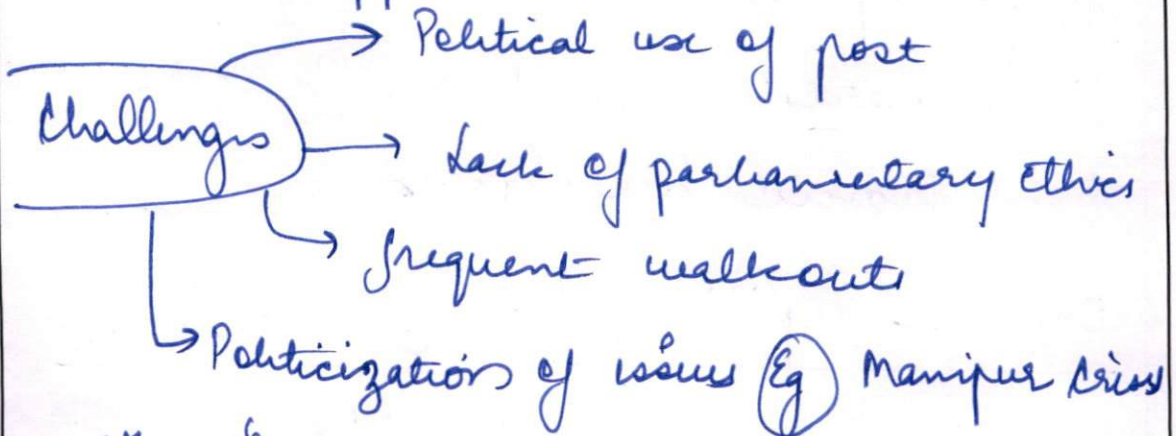 Political use of post
Challenges
Lack of parliamentary ethics
frequent walkouts
Politicization of issues Eg Manipur crisis